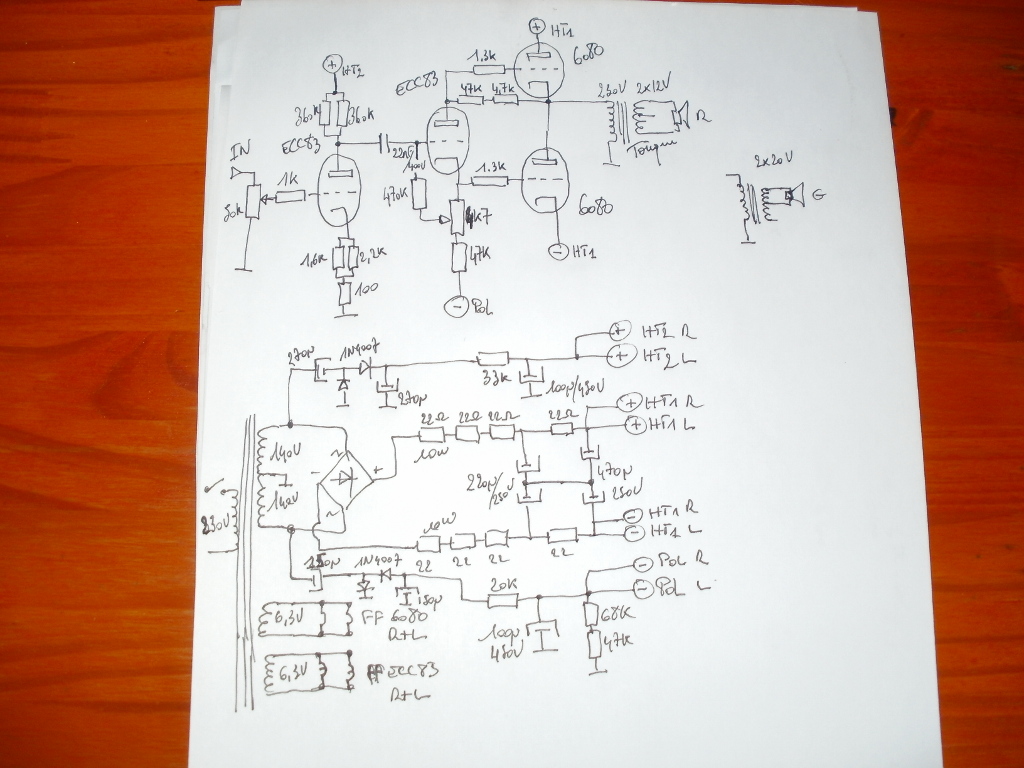 HT1
6080
1.3K
ECC83
47K
4,7K
HT2
360K
360K
230V
2x12V
R
Torique
IN
ECC83
22nF
400V
1K
470K
1.3K
4K7
6080
2x20V
G
50K
1,6K
2,2K
47K
HT1
100
Pol
270µ
1N4007
33K
270µ
100µ/450V
HT2 R
HT2 L
22Ω
22Ω
22Ω
22Ω
10W
HT1 R
HT1 L
140V
140V
~
-
+
~
220µ/250V
470µ
250V
230V
10W
22
22
22
22
HT1 R
HT1 L
150µ
1N4007
150µ
20K
Pol R
Pol L
100µ
450V
68K
47K
6,3V
FF 6080
R+L
6,3V
FF ECC83
R+L